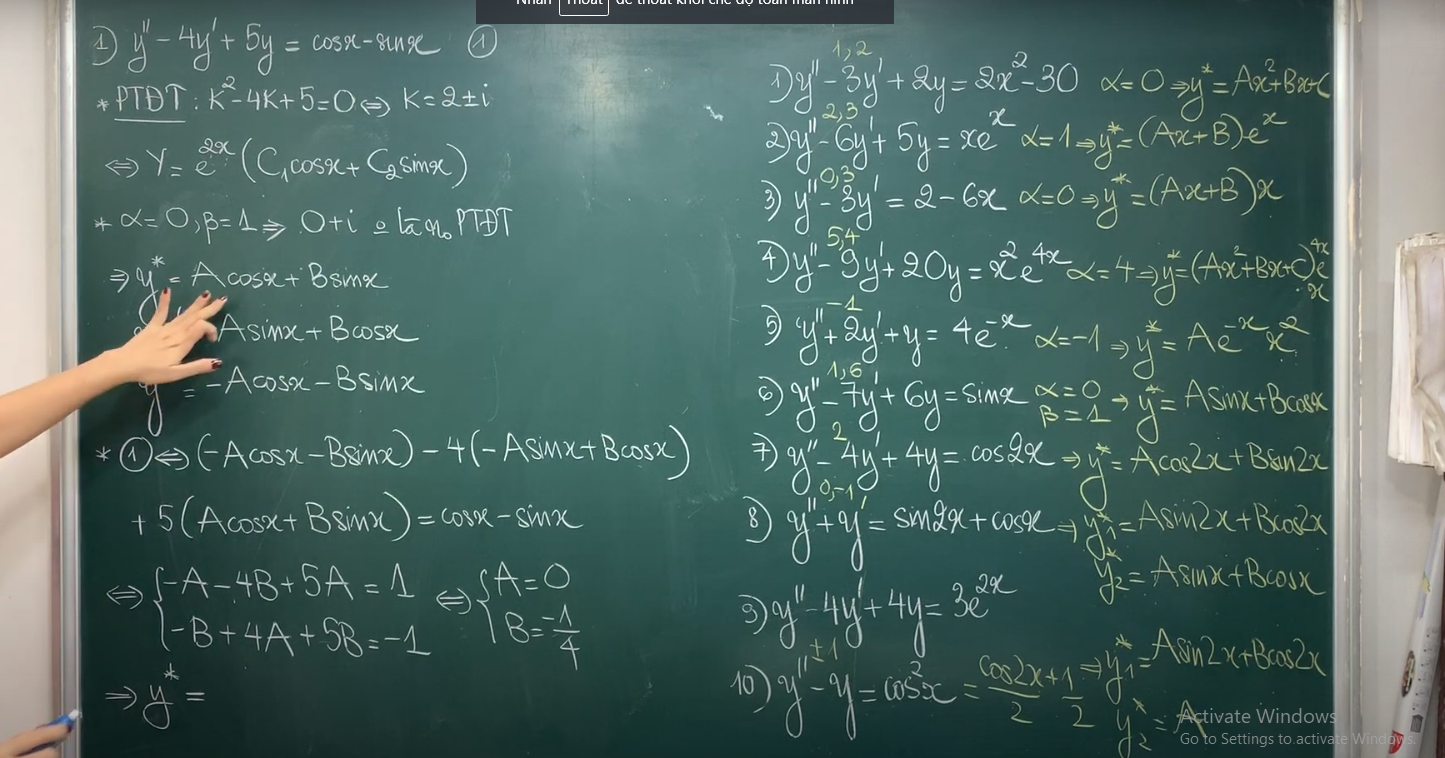 Nhấn Thoát để thoát khỏi chế độ toàn màn hình
1) y'' - 4y' + 5y = cosx - sinx ①
* PTĐT : K² - 4K + 5 = 0 ⇔ K = 2 ± i
⇔ Y = e^{2x} (C₁cosx + C₂sinx)
* α = 0, β = 1 ⇒ 0 + i là n₀ PTĐT
⇒ y* = Acosx + Bsinx
Asinx + Bcosx
y = -Acosx - Bsinx
* ① ⇔ (-Acosx - Bsinx) - 4(-Asinx + Bcosx)
+ 5(Acosx + Bsinx) = cosx - sinx
⇔ { -A - 4B + 5A = 1 ⇔ { A = 0
-B + 4A + 5B = -1 B = -1/4
⇒ y* =
1, 2
1) y'' - 3y' + 2y = 2x² - 30 α = 0 ⇒ y* = Ax² + Bx + C
2, 3
2) y'' - 6y' + 5y = xe^x α = 1 ⇒ y* = (Ax + B)e^x
0, 3
3) y'' - 3y' = 2 - 6x α = 0 ⇒ y* = (Ax + B)x
5, 4
4) y'' - 9y' + 20y = x²e^{4x} α = 4 ⇒ y* = (Ax² + Bx + C)e^{4x}.x
-1
5) y'' + 2y' + y = 4e^{-x} α = -1 ⇒ y* = Ae^{-x}x²
1, 6
6) y'' - 7y' + 6y = sinx α = 0 β = 1 → y* = Asinx + Bcosx
2
7) y'' - 4y' + 4y = cos2x ⇒ y* = Acos2x + Bsin2x
0, -1
8) y'' + y' = sin2x + cosx ⇒ y₁* = Asin2x + Bcos2x
y₂* = Asinx + Bcosx
9) y'' - 4y' + 4y = 3e^{2x}
±1
10) y'' - y = cos²x = cos2x/2 + 1/2 ⇒ y₁* = Asin2x + Bcos2x
y₂* = A
Activate Windows
Go to Settings to activate Windows.